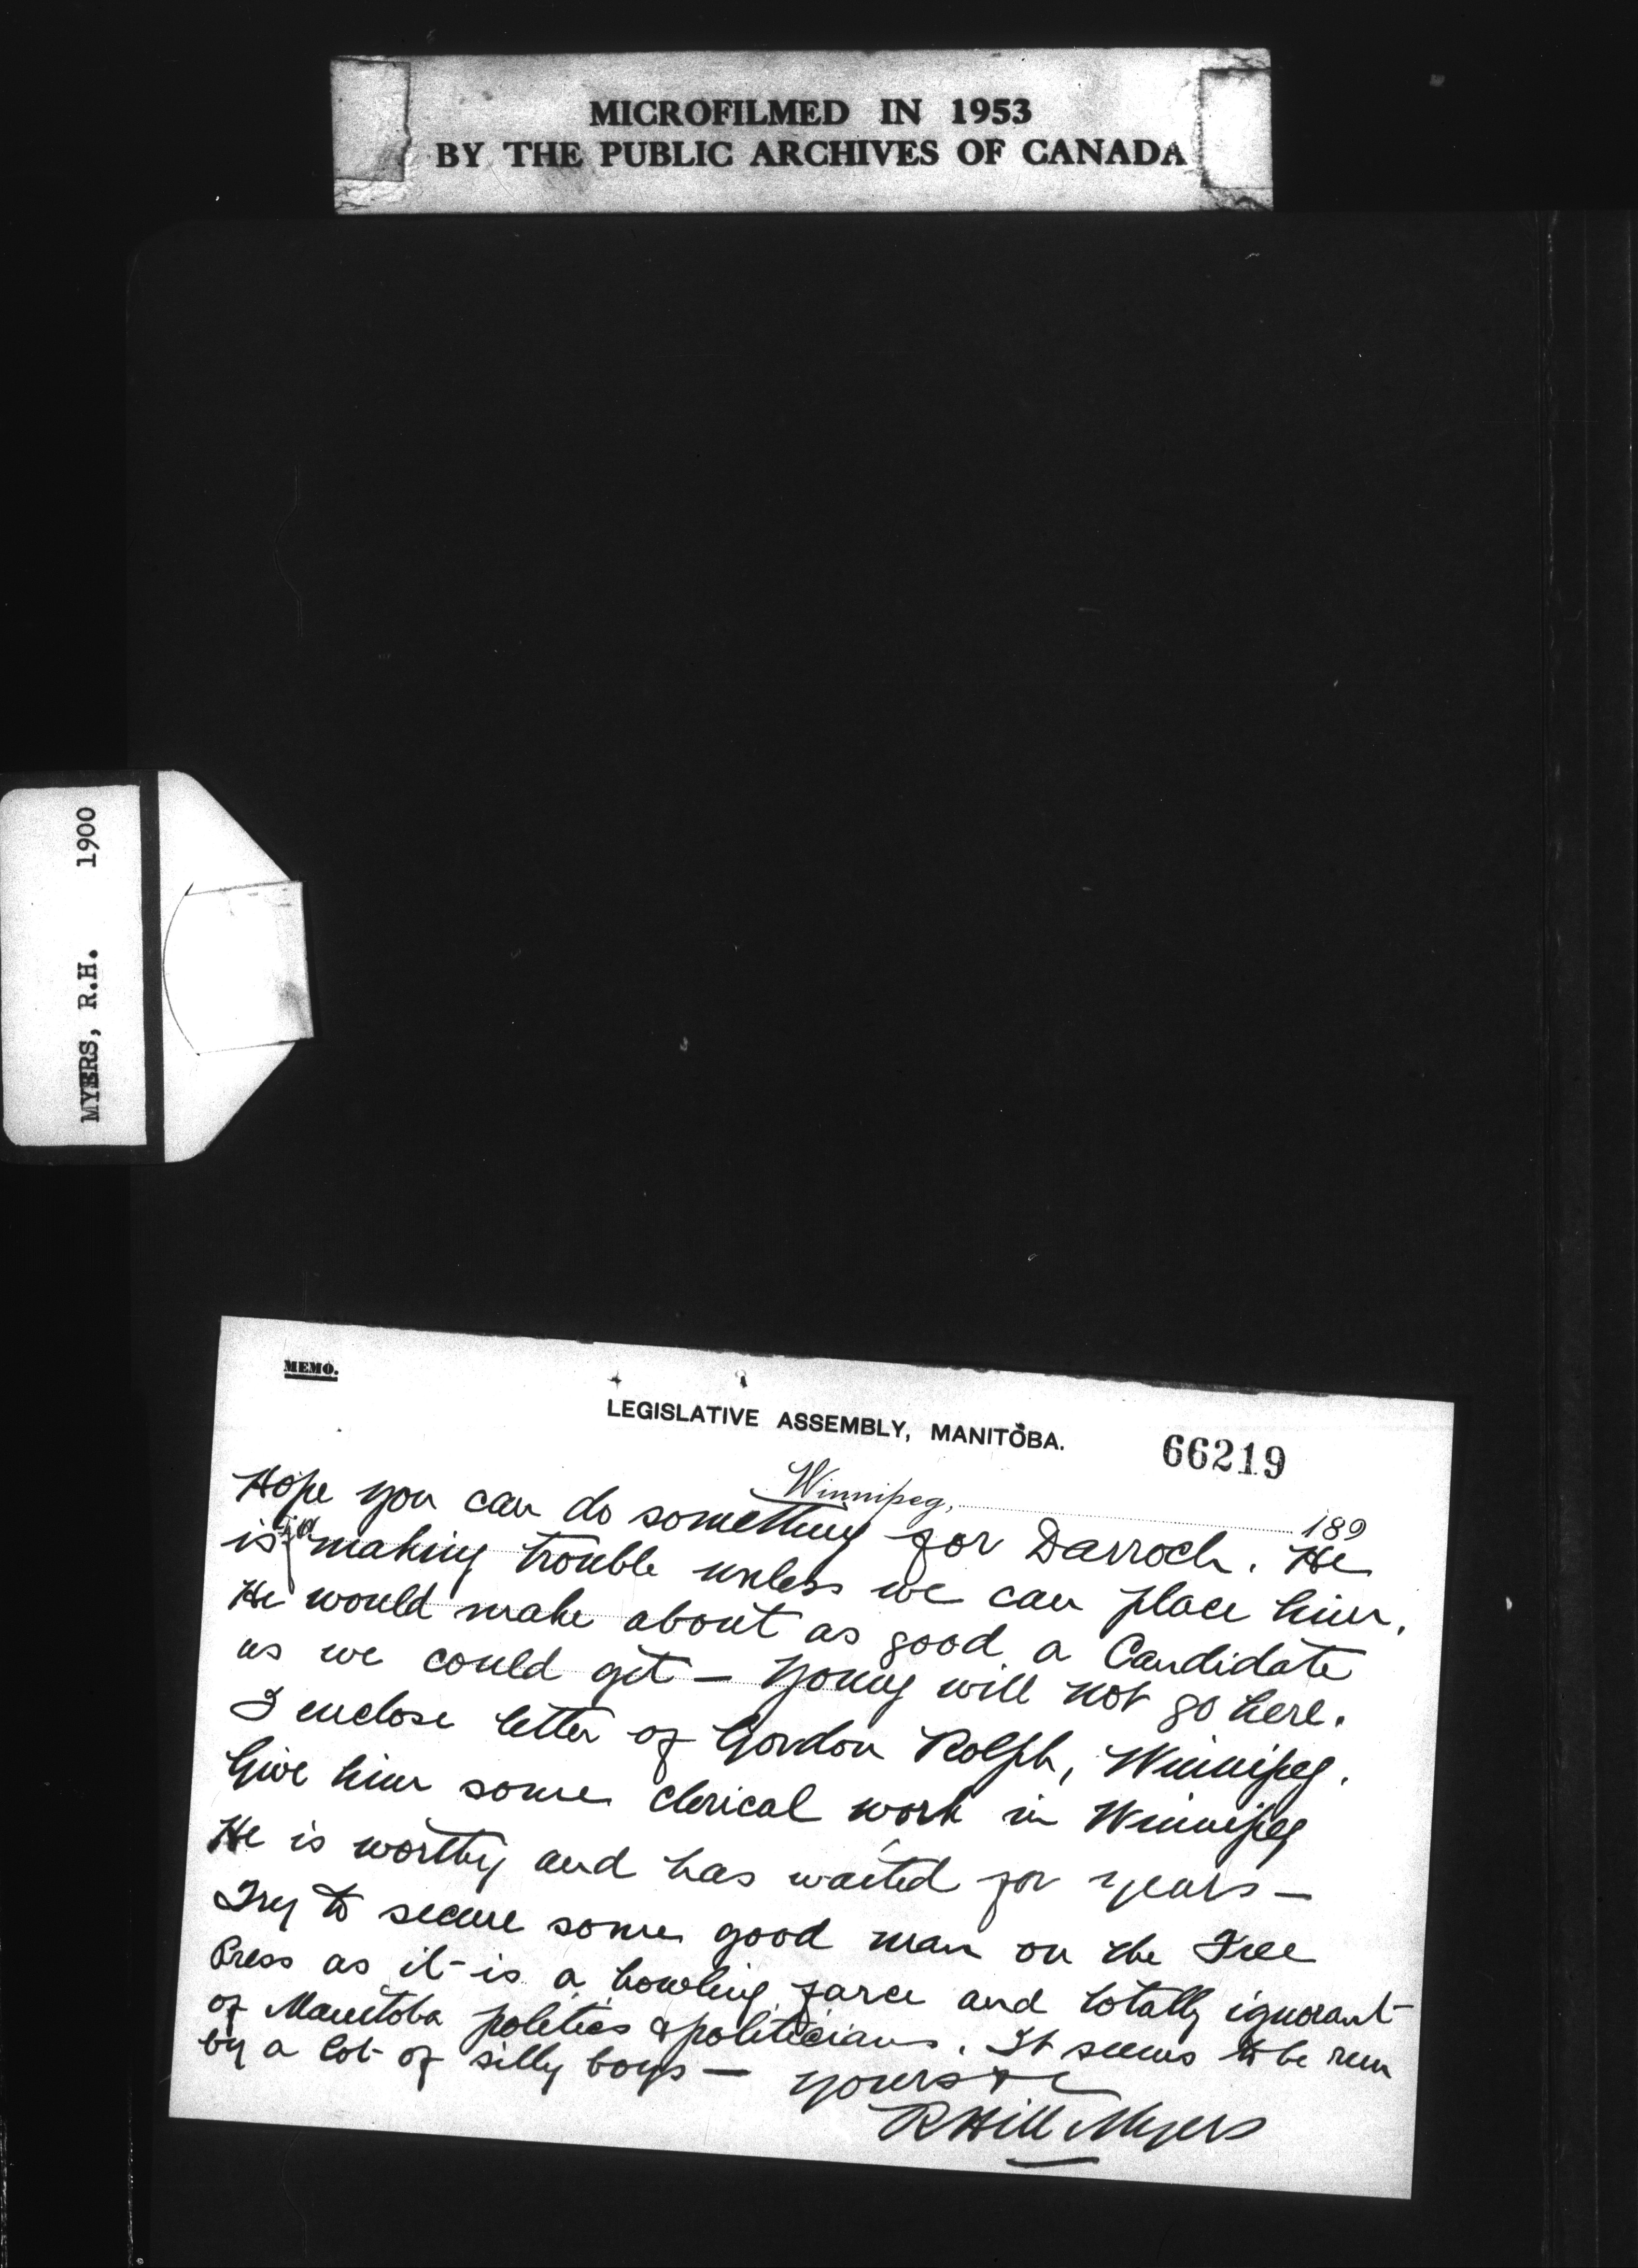 MICROFILMED IN 1953
BY THE PUBLIC ARCHIVES OF CANADA
MYERS, R.H. 1900
MEMO.
LEGISLATIVE ASSEMBLY, MANITOBA.
66219
Winnipeg, 189
Hope you can do something for Darroch. He
is making trouble unless we can place him.
He would make about as good a Candidate
as we could get – Young will not go here.
I enclose letter of Gordon Rolph, Winnipeg.
Give him some clerical work in Winnipeg
He is worthy and has waited for years –
Try to secure some good man on the Free
Press as it is a howling farce and totally ignorant
of Manitoba politics & politicians. It seems to be run
by a lot of silly boys – Yours &c
R Hill Myers